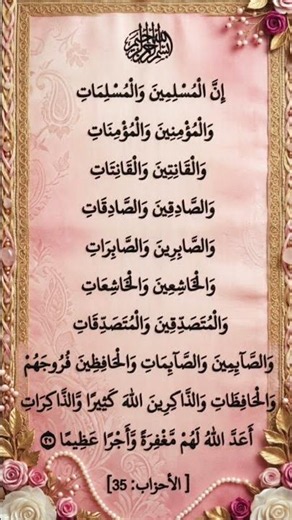 بسم الله الرحمن الرحيم
إِنَّ الْمُسْلِمِينَ وَالْمُسْلِمَاتِ
وَالْمُؤْمِنِينَ وَالْمُؤْمِنَاتِ
وَالْقَانِتِينَ وَالْقَانِتَاتِ
وَالصَّادِقِينَ وَالصَّادِقَاتِ
وَالصَّابِرِينَ وَالصَّابِرَاتِ
وَالْخَاشِعِينَ وَالْخَاشِعَاتِ
وَالْمُتَصَدِّقِينَ وَالْمُتَصَدِّقَاتِ
وَالصَّآيِمِينَ وَالصَّآيِمَاتِ وَالْحَافِظِينَ فُرُوجَهُمْ
وَالْحَافِظَاتِ وَالذَّاكِرِينَ اللهَ كَثِيرًا وَّالذَّاكِرَاتِ
أَعَدَّ اللهُ لَهُمْ مَّغْفِرَةً وَّأَجْرًا عَظِيمًا
[ الأحزاب: 35]